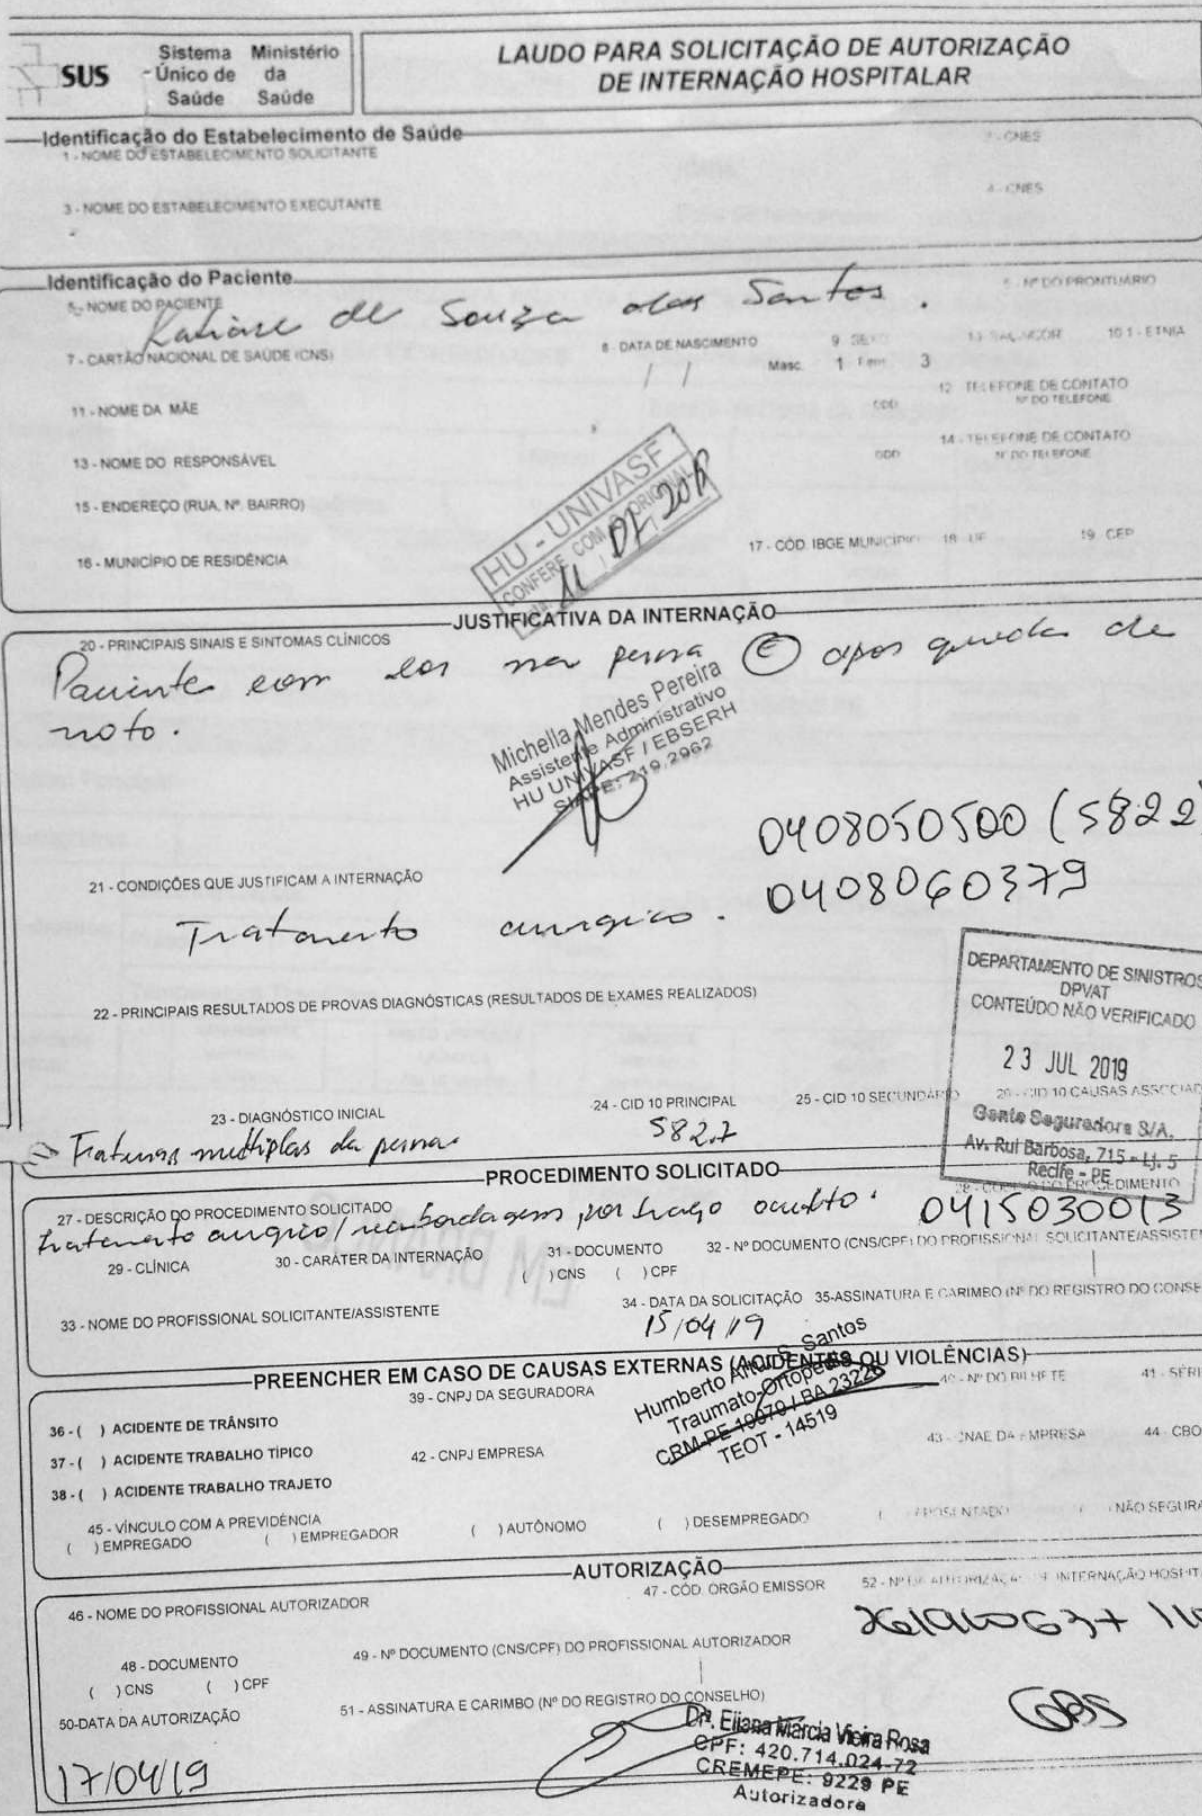 SUS
Sistema Único de Saúde
Ministério da Saúde
LAUDO PARA SOLICITAÇÃO DE AUTORIZAÇÃO
DE INTERNAÇÃO HOSPITALAR
Identificação do Estabelecimento de Saúde
1 - NOME DO ESTABELECIMENTO SOLICITANTE
CNES
3 - NOME DO ESTABELECIMENTO EXECUTANTE
4 - CNES
Identificação do Paciente
5 - NOME DO PACIENTE
Nº DO PRONTUÁRIO
de Souza dos Santos.
7 - CARTÃO NACIONAL DE SAÚDE (CNS)
8 - DATA DE NASCIMENTO
9 SEXO
10.1 - ETNIA
/ /
Masc. 1 Fem 3
11 - NOME DA MÃE
12 TELEFONE DE CONTATO
DDD Nº DO TELEFONE
13 - NOME DO RESPONSÁVEL
14 - TELEFONE DE CONTATO
DDD Nº DO TELEFONE
15 - ENDEREÇO (RUA, Nº, BAIRRO)
HU - UNIVASF
CONFERE COM O ORIGINAL
16 - MUNICÍPIO DE RESIDÊNCIA
17 - CÓD. IBGE MUNICÍPIO 18 UF 19 CEP
JUSTIFICATIVA DA INTERNAÇÃO
20 - PRINCIPAIS SINAIS E SINTOMAS CLÍNICOS
Paciente com dor na perna (E) apos queda de
moto.
Michella Mendes Pereira
Assistente Administrativo
HU UNIVASF / EBSERH
SIAPE: 219.2962
0408050500 (S822
21 - CONDIÇÕES QUE JUSTIFICAM A INTERNAÇÃO
0408060379
Tratamento cirurgico.
22 - PRINCIPAIS RESULTADOS DE PROVAS DIAGNÓSTICAS (RESULTADOS DE EXAMES REALIZADOS)
DEPARTAMENTO DE SINISTROS
DPVAT
CONTEÚDO NÃO VERIFICADO
23 JUL 2019
Gente Seguradora S/A.
Av. Rui Barbosa, 715 - Lj. 5
Recife - PE
23 - DIAGNÓSTICO INICIAL
24 - CID 10 PRINCIPAL
25 - CID 10 SECUNDÁRIO
26 - CID 10 CAUSAS ASSOCIAD
Fraturas multiplas da perna
S82.7
PROCEDIMENTO SOLICITADO
27 - DESCRIÇÃO DO PROCEDIMENTO SOLICITADO
28 - CÓDIGO DO PROCEDIMENTO
tratamento cirurgico / por traço oculto.
0415030013
29 - CLÍNICA
30 - CARÁTER DA INTERNAÇÃO
31 - DOCUMENTO
( ) CNS ( ) CPF
32 - Nº DOCUMENTO (CNS/CPF) DO PROFISSIONAL SOLICITANTE/ASSISTEN
33 - NOME DO PROFISSIONAL SOLICITANTE/ASSISTENTE
34 - DATA DA SOLICITAÇÃO
35-ASSINATURA E CARIMBO (Nº DO REGISTRO DO CONSE
15/04/19
Humberto Artur S. Santos
Traumato-Ortopedia
CRM-PE 19979 / BA 23226
TEOT - 14519
PREENCHER EM CASO DE CAUSAS EXTERNAS (ACIDENTES OU VIOLÊNCIAS)
36 - ( ) ACIDENTE DE TRÂNSITO
39 - CNPJ DA SEGURADORA
40 - Nº DO BILHETE
41 - SÉRI
37 - ( ) ACIDENTE TRABALHO TÍPICO
42 - CNPJ EMPRESA
43 - CNAE DA EMPRESA
44 - CBO
38 - ( ) ACIDENTE TRABALHO TRAJETO
45 - VÍNCULO COM A PREVIDÊNCIA
( ) EMPREGADO ( ) EMPREGADOR ( ) AUTÔNOMO ( ) DESEMPREGADO ( ) APOSENTADO ( ) NÃO SEGURA
AUTORIZAÇÃO
46 - NOME DO PROFISSIONAL AUTORIZADOR
47 - CÓD. ORGÃO EMISSOR
52 - Nº DE AUTORIZAÇÃO DE INTERNAÇÃO HOSPIT
48 - DOCUMENTO
( ) CNS ( ) CPF
49 - Nº DOCUMENTO (CNS/CPF) DO PROFISSIONAL AUTORIZADOR
50-DATA DA AUTORIZAÇÃO
51 - ASSINATURA E CARIMBO (Nº DO REGISTRO DO CONSELHO)
17/04/19
Drª. Eliana Márcia Vieira Rosa
CPF: 420.714.024-72
CREMEPE: 9229 PE
Autorizadora